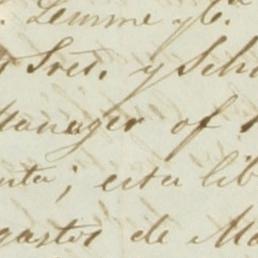 Lemme y Ca.
Sres. y Sch
Manager of
nta; esta lib
gastos de Ma